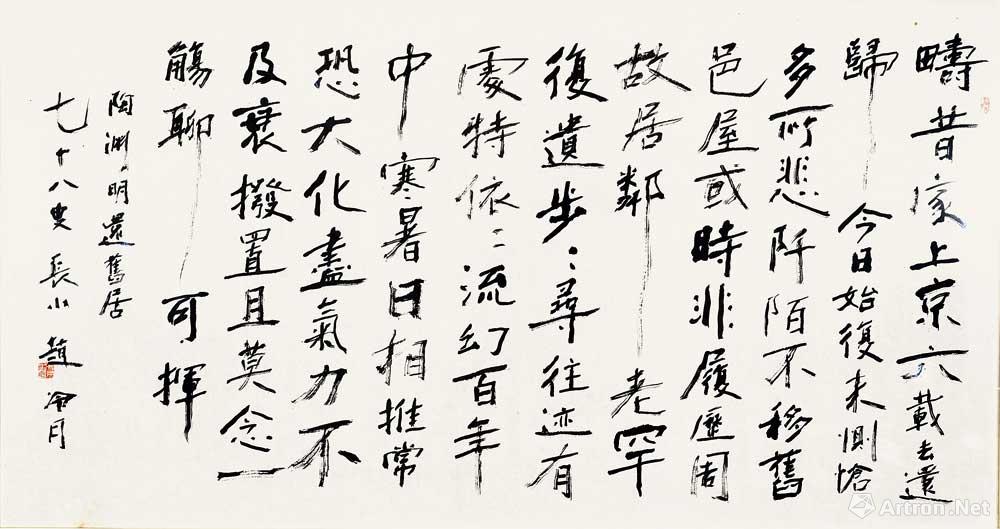 疇昔家上京六載去還
歸今日始復来惻愴
多所悲阡陌不移舊
邑屋或時非履歷周
故居鄰老罕
復遺步〻尋往迹有
處特依〻流幻百年
中寒暑日相推常
恐大化盡氣力不
及衰撥置且莫念一
觴聊可揮
陶淵明還舊居
七十八叟長水趙冷月
Artron.Net